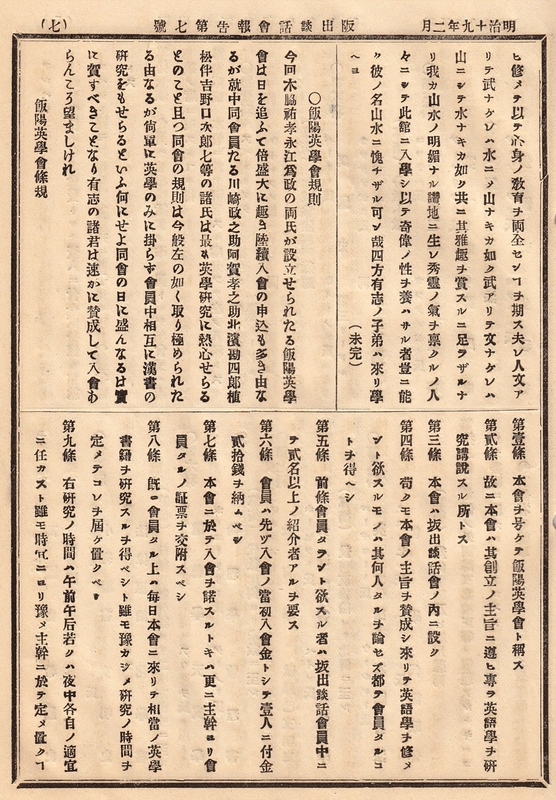 明治十九年二月
阪出談話會報告第七號
(七)
ヒ修メテ以テ心身ノ敎育ヲ兩全センコヲ期ス夫レ人文ア
リテ武ナケレハ水ニノ山ナキカ如ク武アリテ文ナケレハ
山ニシテ水ナキカ如ク共ニ其雅趣ヲ賞スルニ足ラザルナ
リ我カ山水ノ明媚ナル諸地ニ生レ秀靈ノ氣ヲ禀クルノ人
々ニシテ此館ニ入學シ以テ奇偉ノ性ヲ養ハサル者豈ニ能
ク彼ノ名山水ニ愧チザル可ン哉四方有志ノ子弟ハ來リ學
ヘヨ
(未完)
〇飯陽英學會規則
今回木脇祐孝永江爲政の両氏が設立せられたる飯陽英學
會は日を追ふて倍盛大に趣き陸續入會の申込も多き由な
るが就中同會員たる川崎政之助阿賀孝之助北濱勘四郎植
松伴吉野口次郎七等の諸氏は最も英學硏究に熱心せらる
とのこと且つ同會の規則は今般左の如く取り極められた
る由なるが尙單に英學のみに掛らす會員中相互に漢書の
硏究をもせらるといふ何にせよ同會の日に盛んなるは實
に賀すべきことなり有志の諸君は速かに賛成して入會あ
らんころ望ましけれ
飯陽英學會條規
第壹條 本會ヲ号ケテ飯陽英學會ト稱ス
第貳條 故ニ本會ハ其創立ノ主旨ニ遵ヒ專ラ英語學ヲ硏
究講說スル所トス
第三條 本會ハ坂出談話會ノ內ニ設ク
第四條 苟クモ本會ノ主旨ヲ賛成シ來リテ英語學ヲ修メ
ント欲スルモノハ其何人タルヲ論セズ都テ會員タルコ
トヲ得ヘシ
第五條 前條會員タラント欲スル者ハ坂出談話會員中ニ
テ貳名以上ノ紹介者アルヲ要ス
第六條 會員ハ先ヅ入會ノ當初入會金トシテ壹人ニ付金
貳拾錢ヲ納ムベシ
第七條 本會ニ於テ入會ヲ諾スルトキハ更ニ主幹ヨリ會
員タルノ証票ヲ交附スベシ
第八條 既ニ會員タル上ハ每日本會ニ來リテ相當ノ英學
書籍ヲ硏究スルヲ得ベシト雖モ豫ガジメ硏究ノ時間ヲ
定メテコレヲ屆ケ置クベシ
第九條 右硏究ノ時間ハ午前午后若クハ夜中各自ノ適宜
ニ任カスト雖モ時宜ニヨリ豫メ主幹ニ於テ定メ置クコ